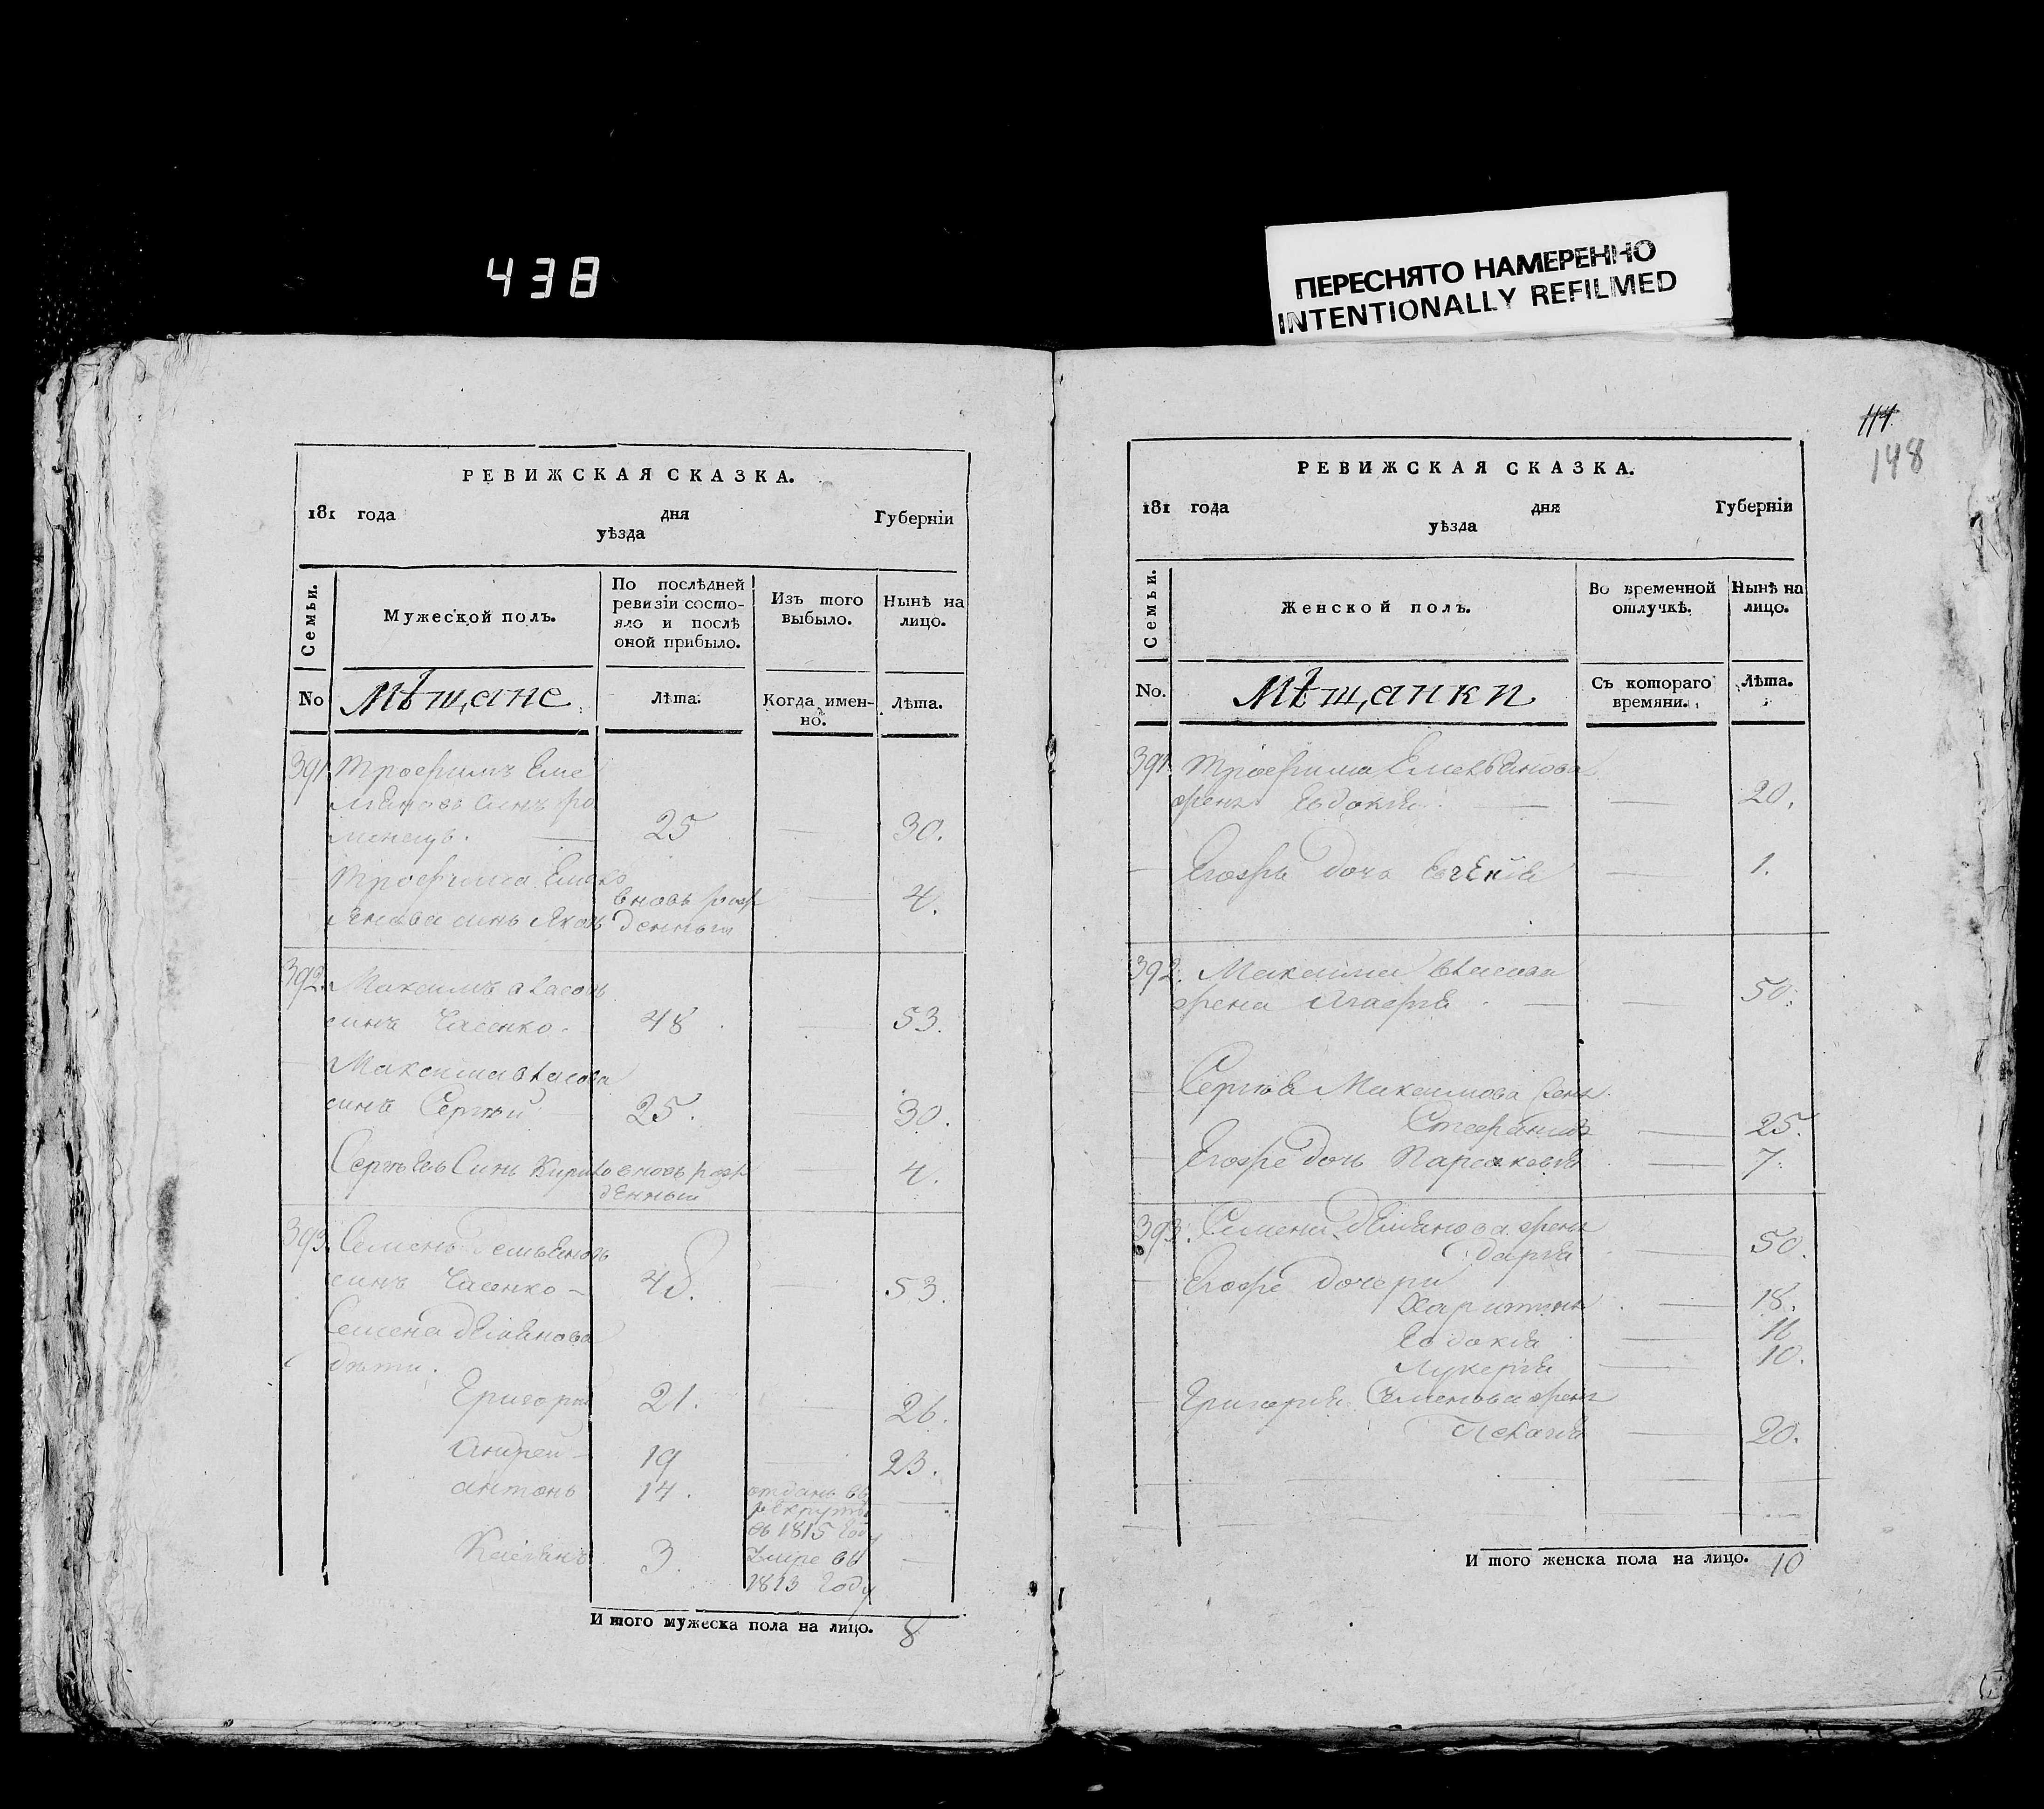 438
ПЕРЕСНЯТО НАМЕРЕННО
INTENTIONALLY REFILMED
РЕВИЖСКАЯ СКАЗКА.
181 года дня Губернїи
уѣзда
Семьи.
Мужеской полъ.
По послѣдней
ревизїи состо-
яло и послѣ
оной прибыло.
Изъ того
выбыло.
Нынѣ на
лицо.
No Мѣщане Лѣта. Когда имен-
но. Лѣта.
391 Трофимъ Еме
льяновъ синъ
25 — 30.
Трофима Емель
янова синъ Яковъ вновь рож
денный — 4.
392. Максимъ власовъ
синъ Часенко. 48 — 53.
Максима власова
синъ Сергѣй 25. — 30.
Сергѣя Синъ Кирило вновь рож
денный — 4.
393. Семенъ Демьяновъ
синъ Часенко — 48. — 53.
Семена демьянова
дѣти.
Григорій 21. — 26.
Андрей — 19 — 23.
антонъ 14. отданъ въ
рекруты
въ 1815 году —
Касіянъ 3. умре въ
1813 году —
И того мужеска пола на лицо. 8
114
148
РЕВИЖСКАЯ СКАЗКА.
181 года дня Губернїи
уѣзда
Семьи.
Женской полъ.
Во временной
отлучкѣ.
Нынѣ на
лицо.
No. Мѣщанки Съ котораго
времяни. Лѣта.
391. Трофима Емельянова
жена Евдокія — — 20.
— Егожъ дочь Евгенія — 1.
392. Максима власова
жена Агафія — — 50.
— Сергѣя Максимова жена
Стефанія — 25.
— Егоже дочь Параскевія — 7.
393. Семена демянова жена
дарія — 50.
— Егоже дочери
Харитина — 18.
Евдокія — 11
Лукерія — 10.
— Григорія Семенова жена
Пелагія — 20.
И того женска пола на лицо. 10